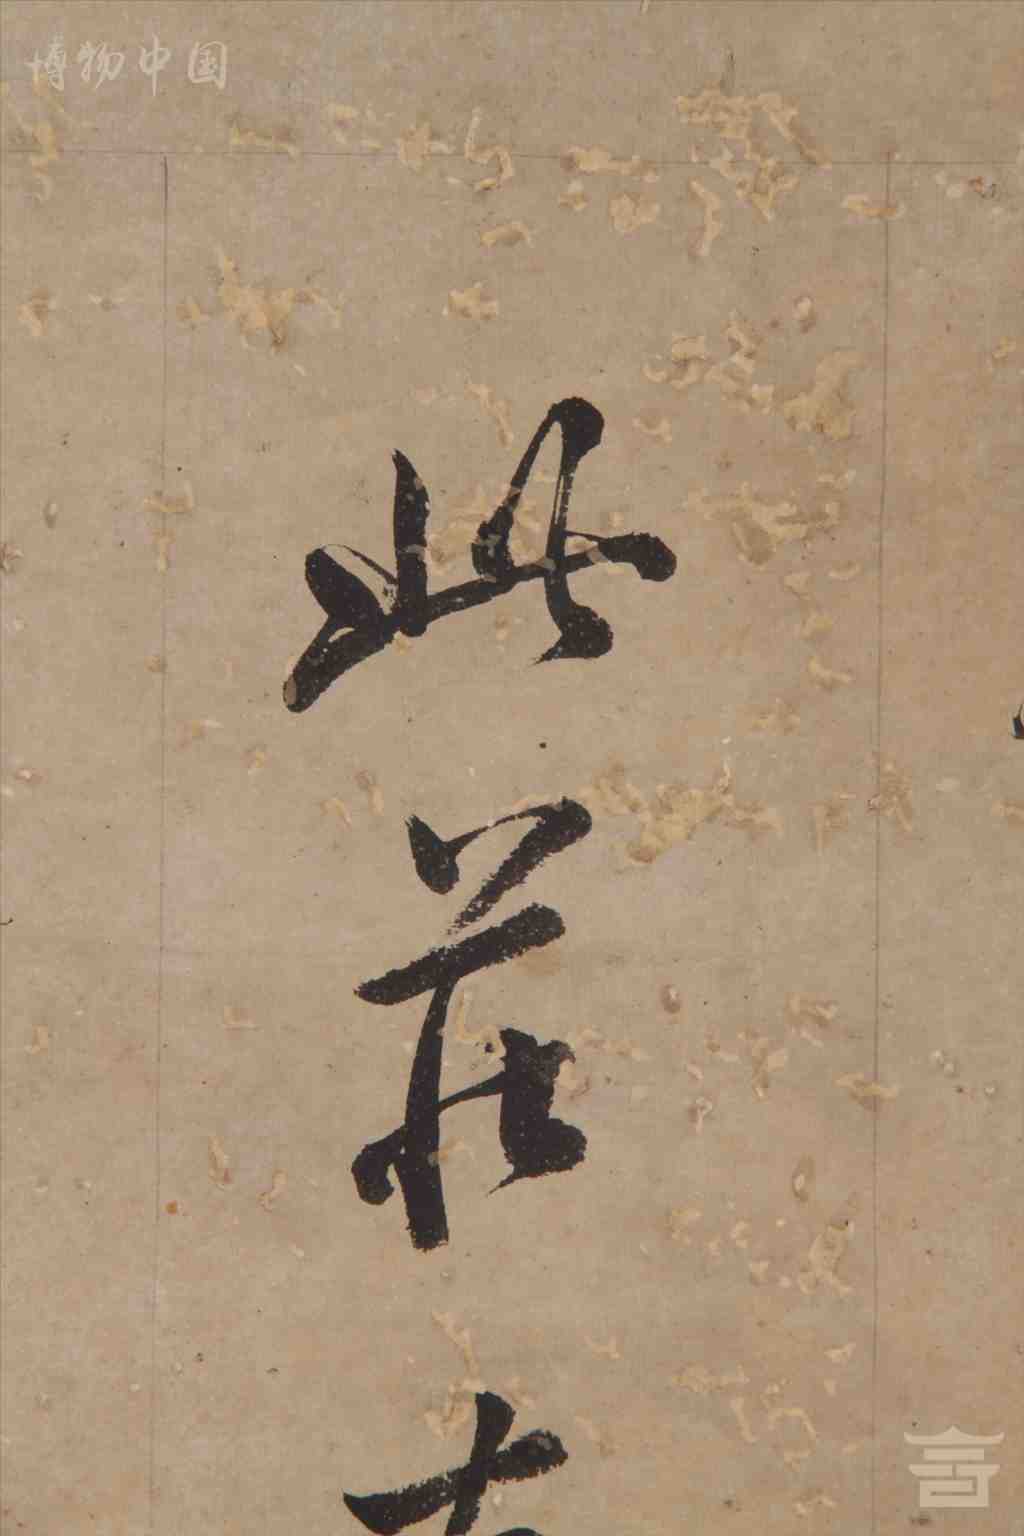 博物中国
此莊